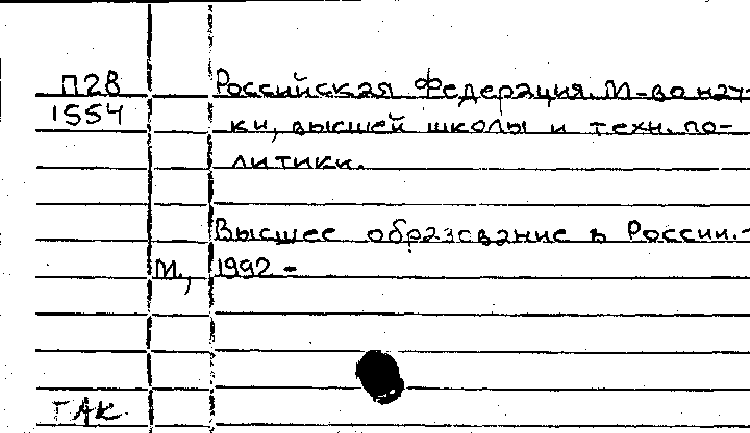 П28 Российская Федерация. М-во нау-
1554 ки, высшей школы и техн. по-
литики.
Высшее образование в России. -
М., 1992 -
ГАК.